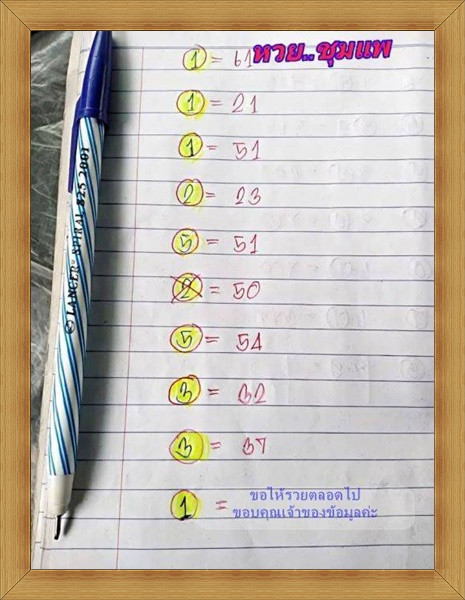 หวย..ชุมแพ
1 = 61
1 = 21
1 = 51
2 = 23
5 = 51
2 = 50
5 = 54
3 = 32
3 = 37
1 =
ขอให้รวยตลอดไป
ขอบคุณเจ้าของข้อมูลค่ะ
© LANCER® SPIRAL 825 2001